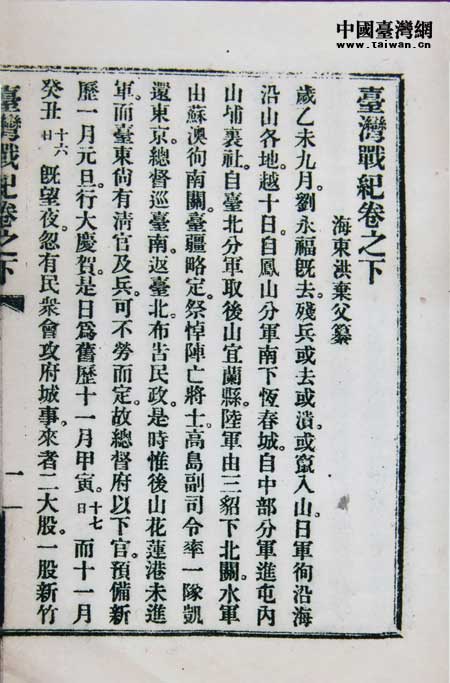 中國臺灣網
www.taiwan.cn
臺灣戰紀卷之下
海東洪棄父纂
歲乙未九月。劉永福既去。殘兵或去或潰。或竄入山。日軍徇沿海
沿山各地。越十日。自鳳山分軍南下恆春城。自中部分軍進屯內
山埔裏社。自臺北分軍取後山宜蘭縣。陸軍由三貂下北關。水軍
由蘇澳徇南關。臺疆略定。祭悼陣亡將士。高島副司令率一隊凱
還東京。總督巡臺南。返臺北。布告民政。是時惟後山花蓮港未進
軍。而臺東尚有清官及兵。可不勞而定。故總督府以下官。預備新
歷一月元旦。行大慶賀。是日為舊歷十一月甲寅。十七日而十一月
癸丑十六日既望夜。忽有民衆會攻府城事。來者二大股。一股新竹
臺灣戰紀卷之下
一